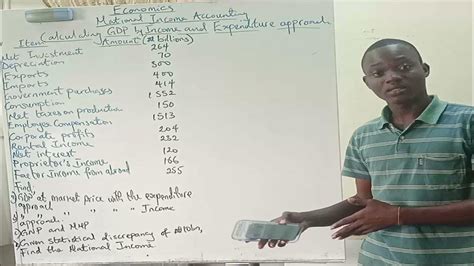 Economics
National Income Accounting
Calculating GDP by Income and Expenditure approach
Item Amount (billions)
Net Investment 264
Depreciation 70
Exports 500
Imports 400
Government purchases 414
Consumption 1552
Net taxes on production 150
Employee Compensation 1513
Corporate profits 204
Rental Income 232
Net interest 120
Proprietor's Income 166
Factor Income from abroad 255
Find,
GDP at market price with the expenditure
approach
" " " " Income
approach
GNP and NNP
Given statistical discrepancy of
Find the National Income